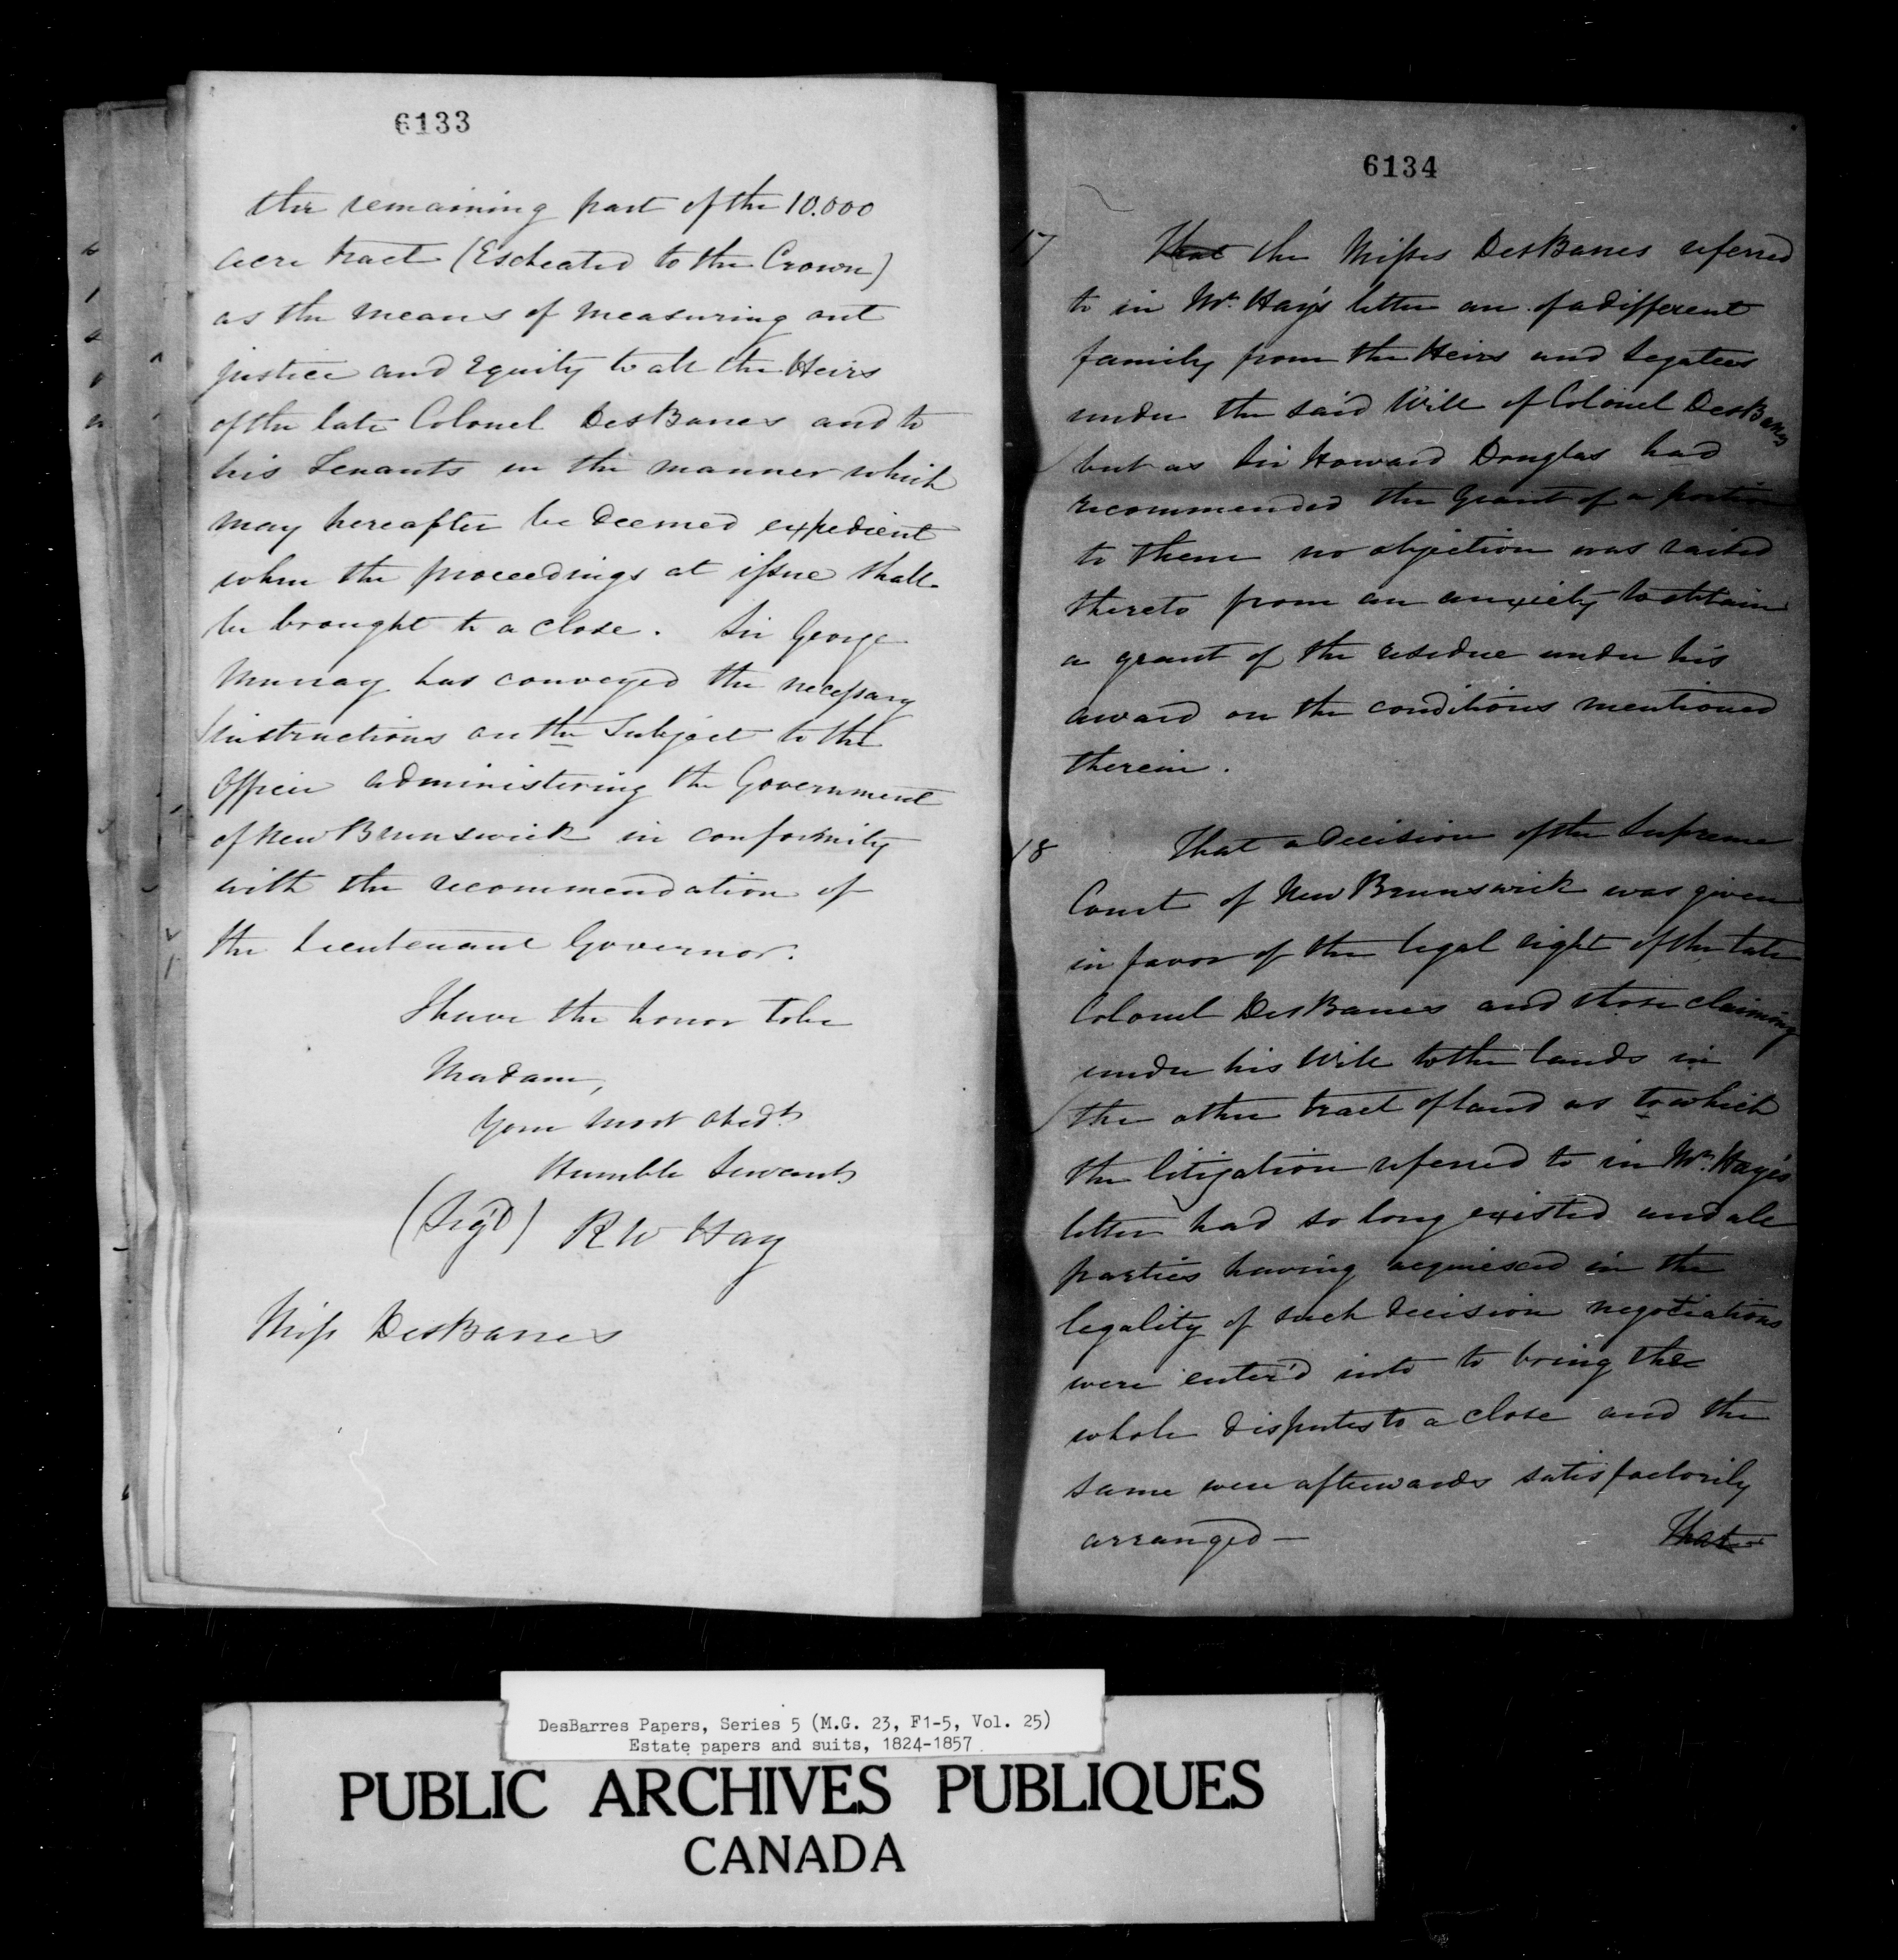 6133
the remaining part of the 10.000
Acre tract (Escheated to the Crown)
as the means of measuring out
justice and Equity to all the Heirs
of the late Colonel DesBarres and to
his Tenants in the manner which
may hereafter be deemed expedient
when the proceedings at issue shall
be brought to a close. Sir George
Murray has conveyed the necessary
instructions on the Subject to the
Officer administering the Government
of New Brunswick in conformity
with the recommendation of
the Lieutenant Governor.
I have the honor to be
Madam,
Your most obedt
Humble Servant
(Sigd) R W Hay
Miss DesBarres
6134
17 That the Misses DesBarres referred
to in Mr. Hay's letter are of a different
family from the Heirs and Legatees
under the said Will of Colonel DesBarres
but as Sir Howard Douglas had
recommended the Grant of a portion
to them no objection was raised
thereto from an anxiety to obtain
a grant of the residue under his
award on the conditions mentioned
therein.
18 That a decision of the Supreme
Court of New Brunswick was given
in favor of the legal right of the late
Colonel DesBarres and those claiming
under his Will to the lands in
the other tract of land as to which
the litigation referred to in Mr. Hay's
letter had so long existed and all
parties having acquiesced in the
legality of such decision negotiations
were enter'd into to bring the
whole disputes to a close and the
same were afterwards satisfactorily
arranged —
That
DesBarres Papers, Series 5 (M.G. 23, F1-5, Vol. 25)
Estate papers and suits, 1824-1857
PUBLIC ARCHIVES PUBLIQUES
CANADA